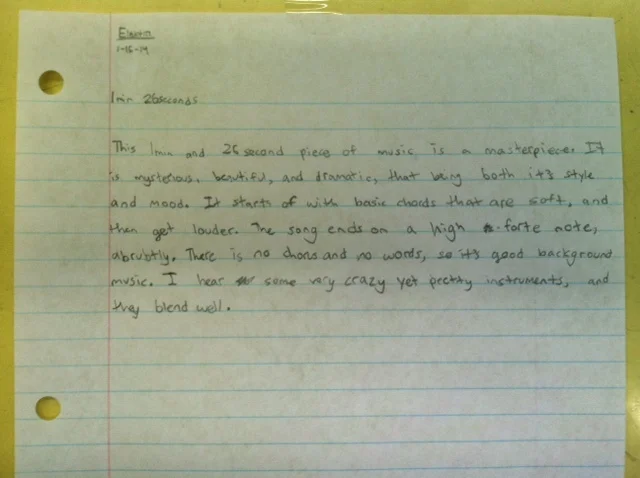 1-15-14
1min 26seconds
This 1min and 26 second piece of music is a masterpiece. It
is mysterious, beautiful, and dramatic, that being both it's style
and mood. It starts of with basic chords that are soft, and
then get louder. The song ends on a high forte note,
abrubtly. There is no chorus and no words, so it's good background
music. I hear some very crazy yet pretty instruments, and
they blend well.